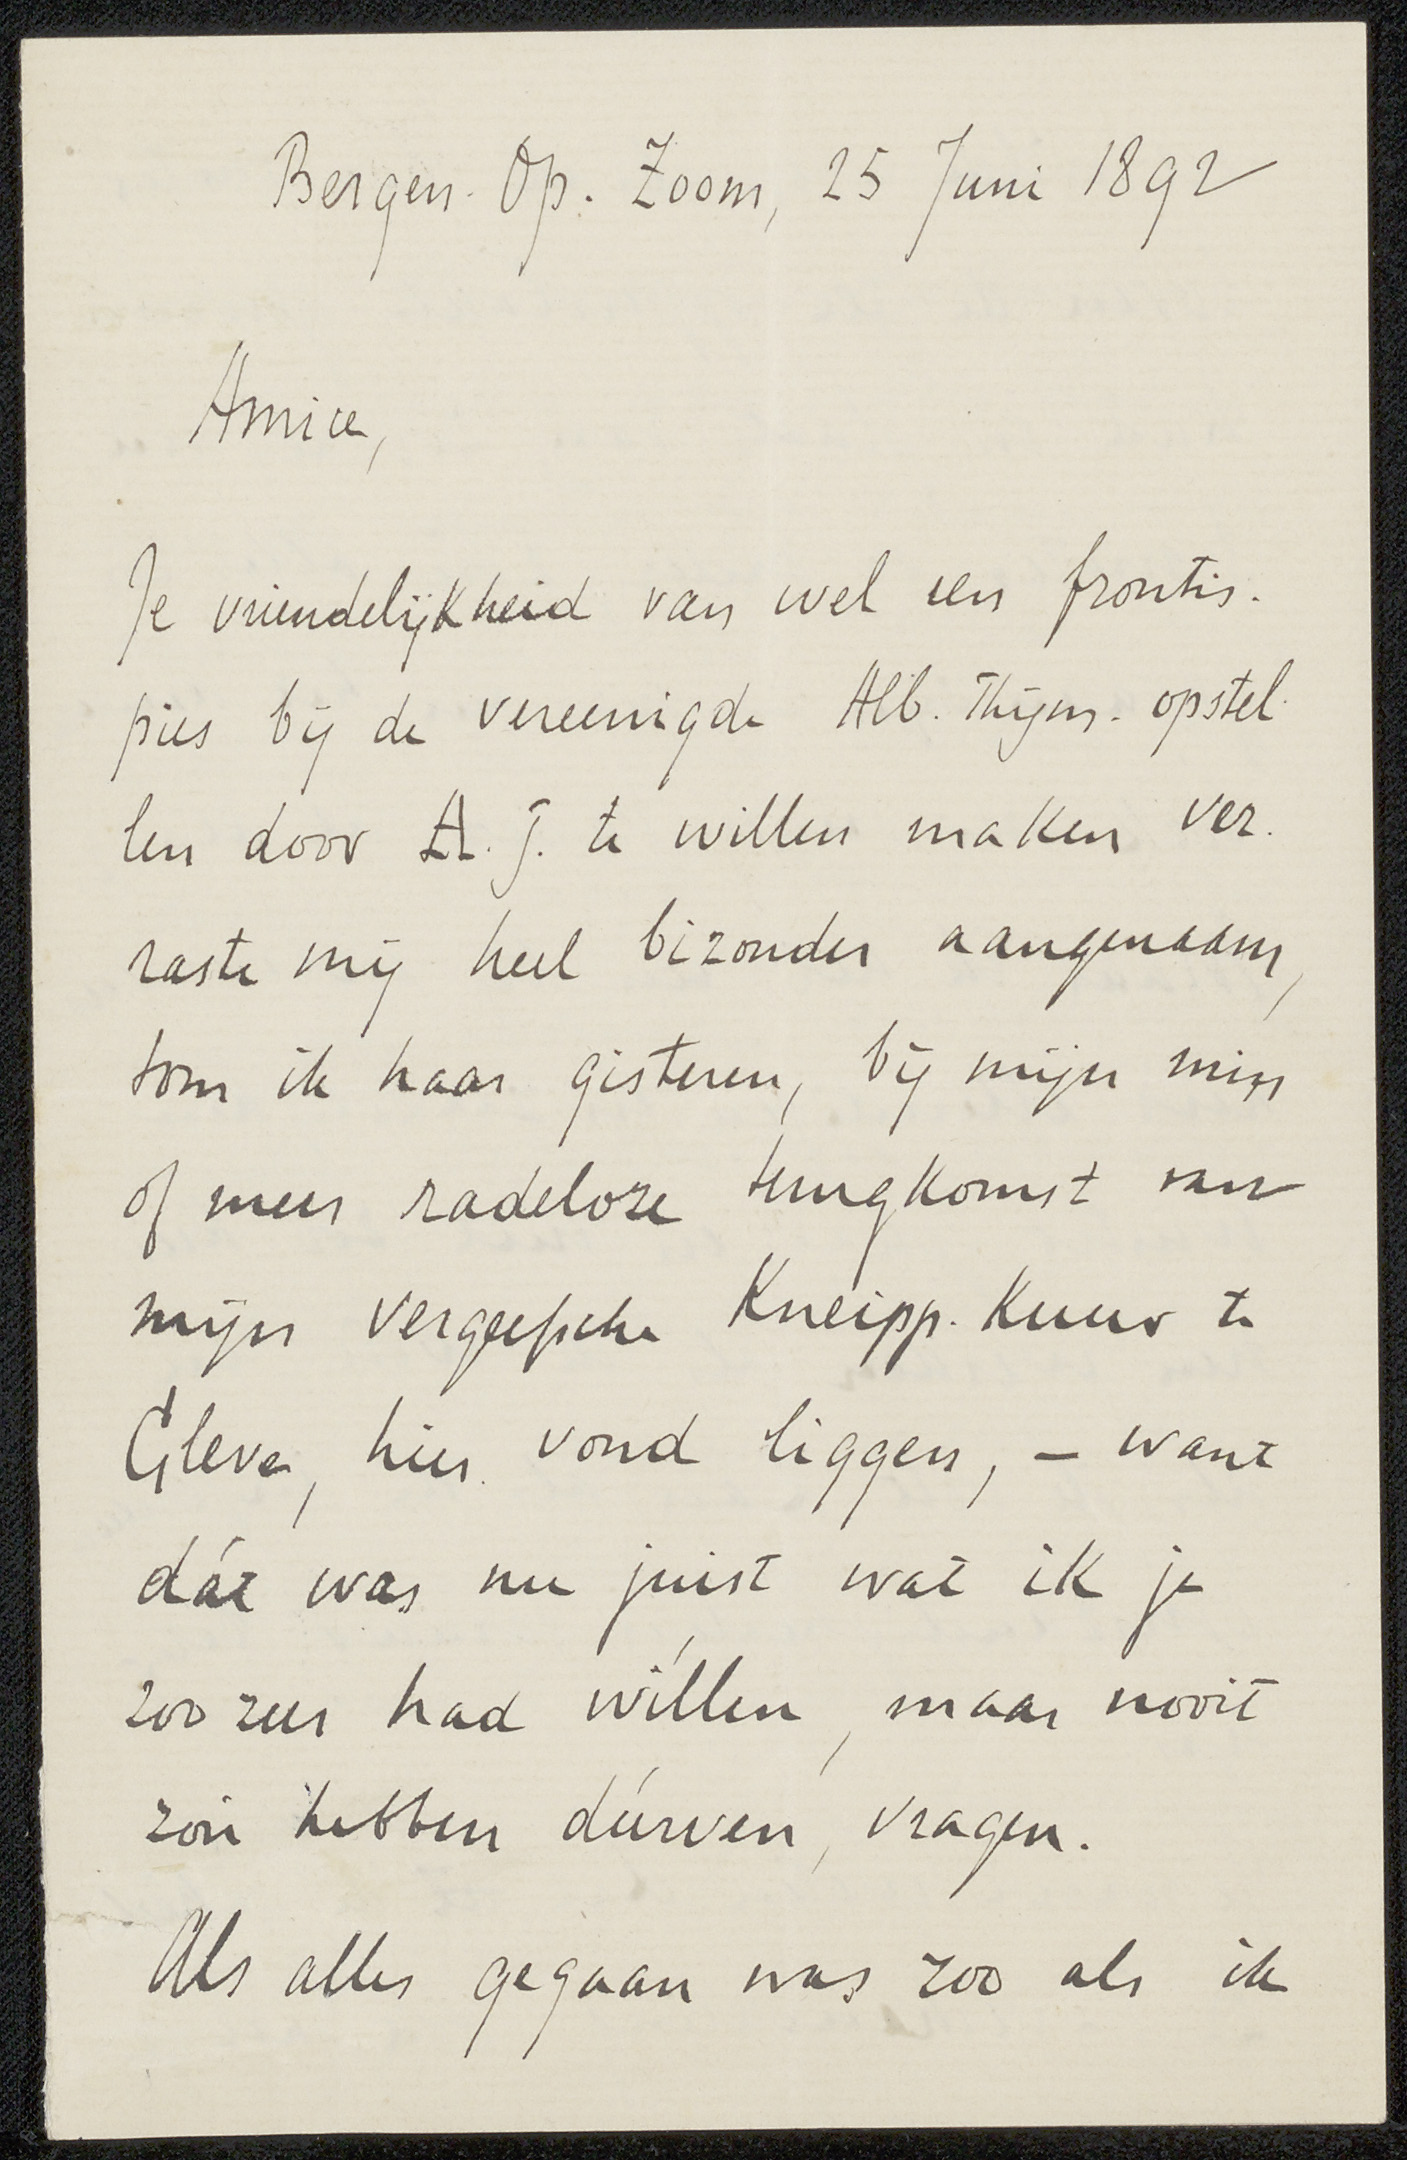 Bergen-Op-Zoom, 25 Juni 1892
Amice,
Je vriendelijkheid van wel een frontis-
pies bij de vereenigde Alb. Thijm-opstel-
len door A. J. te willen maken ver-
raste mij heel bizonder aangenaam,
toen ik haar gisteren, bij mijn min
of meer radeloze terugkomst van
mijn vergeefsche Kneipp-Kuur te
Cleve, hier vond liggen, – want
dát was nu juist wat ik je
zoo zeer had wíllen, maar nooit
zoú hebben dúrven, vragen.
Als alles gegaan was zoo als ik